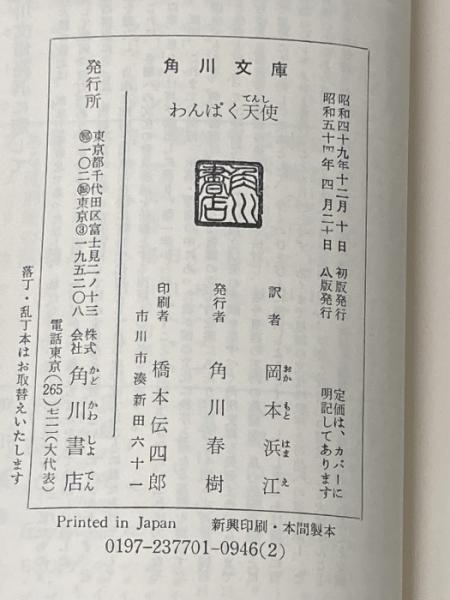 角川文庫
わんぱく天使
てんし
昭和四十九年十二月十日 初版発行
昭和五十四年四月二十日 八版発行
定価は、カバーに
明記してあります
訳者 岡本浜江
おか もと はま え
発行者 角川春樹
印刷者 橋本伝四郎
市川市湊新田六十一
発行所
株式会社 角川書店
かど かわ しょ てん
東京都千代田区富士見二ノ十三
一〇二 東京③一九五二〇八
電話東京(265)七一一一(大代表)
落丁・乱丁本はお取替えいたします
角川書店
Printed in Japan 新興印刷・本間製本
0197-237701-0946(2)